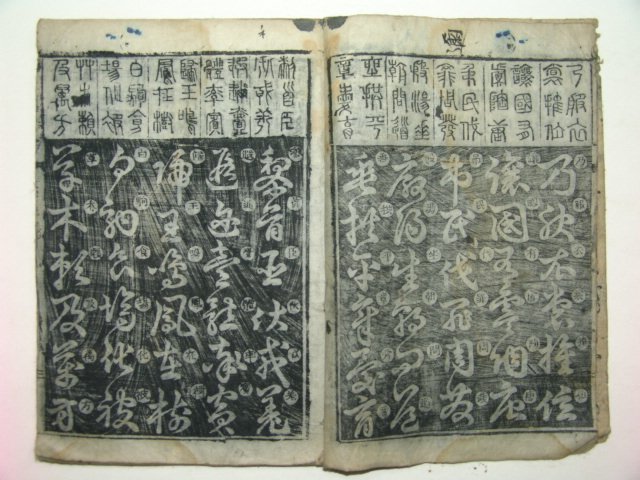 乃服衣
裳推位
讓國有
虞陶唐
弔民伐
罪周發
殷湯坐
朝問道
垂拱平
章愛育
乃服衣裳推位
讓國有虞陶唐
弔民伐罪周發
殷湯坐朝問道
垂拱平章愛育
黎首臣
伏戎羌
遐邇壹
體率賓
歸王鳴
鳳在樹
白駒食
場化被
草木賴
及萬方
黎首臣伏戎羌
遐邇壹體率賓
歸王鳴鳳在樹
白駒食場化被
草木賴及萬方